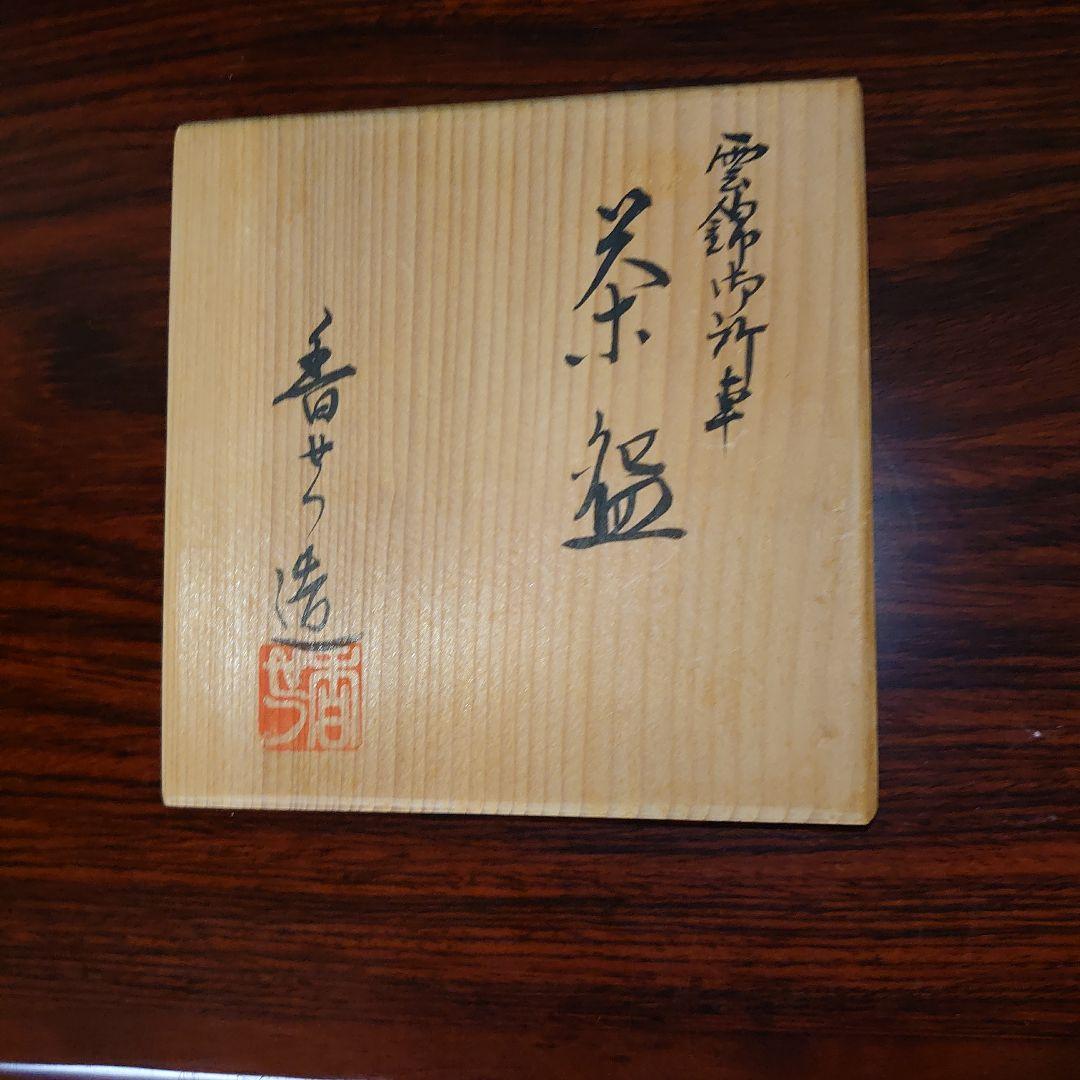 雲錦御所車
茶盌
香せつ造
香せつ